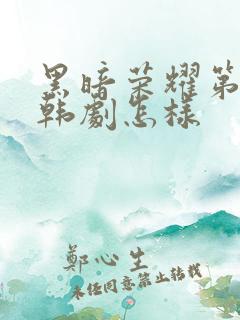 黑暗荣耀第
韩劇怎样
鄭心生
未经同意禁止转载